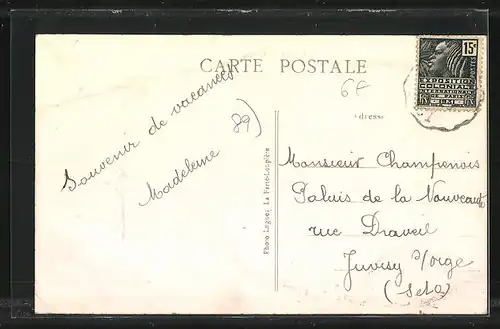 CARTE POSTALE
15c
POSTES
EXPOSITION
COLONIALE
INTERNATIONALE
DE PARIS
1931
6F
adresse
Souvenir de vacances
89)
Madeleine
Photo Luguez La Ferté-Loupière
Monsieur Champenois
Palais de la Nouveauté
rue Draveil
Juvisy s/orge
(Seto)